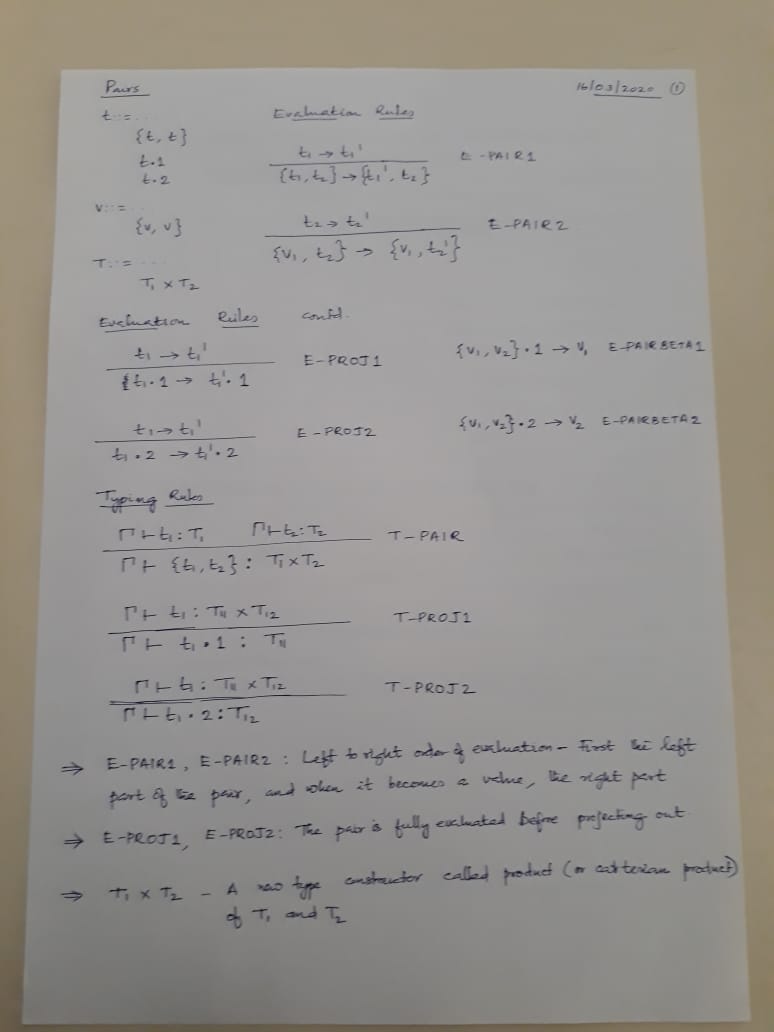 Pairs
16/03/2020 ①
t::= ....
Evaluation Rules
{t, t}
t.1
t.2
t₁ → t₁'
{t₁, t₂} → {t₁', t₂}
E-PAIR1
v::= ...
{v, v}
t₂ → t₂'
{v₁, t₂} → {v₁, t₂'}
E-PAIR2
T::= ....
T₁ × T₂
Evaluation Rules contd.
t₁ → t₁'
t₁.1 → t₁'.1
E-PROJ1
{v₁, v₂}.1 → v₁ E-PAIRBETA1
t₁ → t₁'
t₁.2 → t₁'.2
E-PROJ2
{v₁, v₂}.2 → v₂ E-PAIRBETA2
Typing Rules
Γ ⊢ t₁ : T₁ Γ ⊢ t₂ : T₂
Γ ⊢ {t₁, t₂} : T₁ × T₂
T-PAIR
Γ ⊢ t₁ : T₁₁ × T₁₂
Γ ⊢ t₁.1 : T₁₁
T-PROJ1
Γ ⊢ t₁ : T₁₁ × T₁₂
Γ ⊢ t₁.2 : T₁₂
T-PROJ2
⇒ E-PAIR1, E-PAIR2 : Left to right order of evaluation - First the left
part of the pair, and when it becomes a value, the right part
⇒ E-PROJ1, E-PROJ2: The pair is fully evaluated before projecting out
⇒ T₁ × T₂ - A new type constructor called product (or cartesian product)
of T₁ and T₂